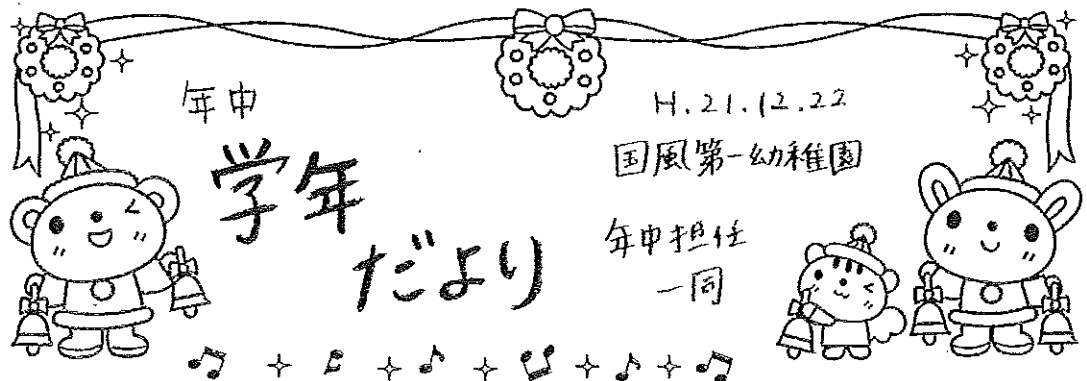 年中
学年
だより
H.21.12.22
国風第一幼稚園
年中担任
一同